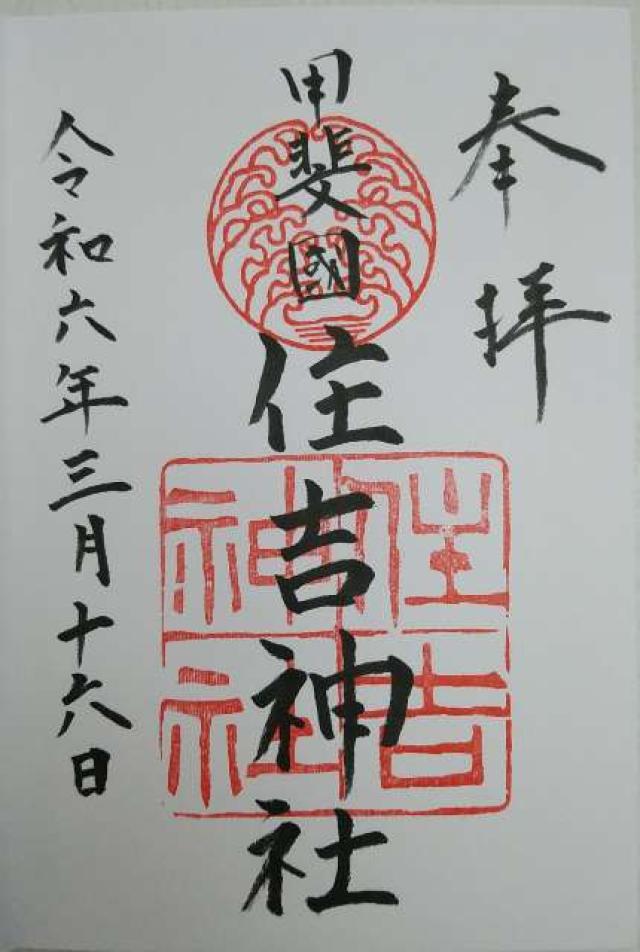 奉拝
甲斐國
住吉神社
住吉
神社
令和六年三月十六日